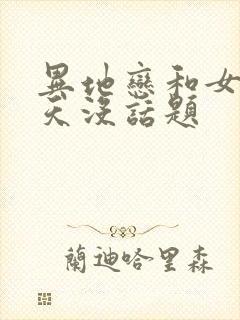 異地戀和女
天沒話題
蘭迪哈里森